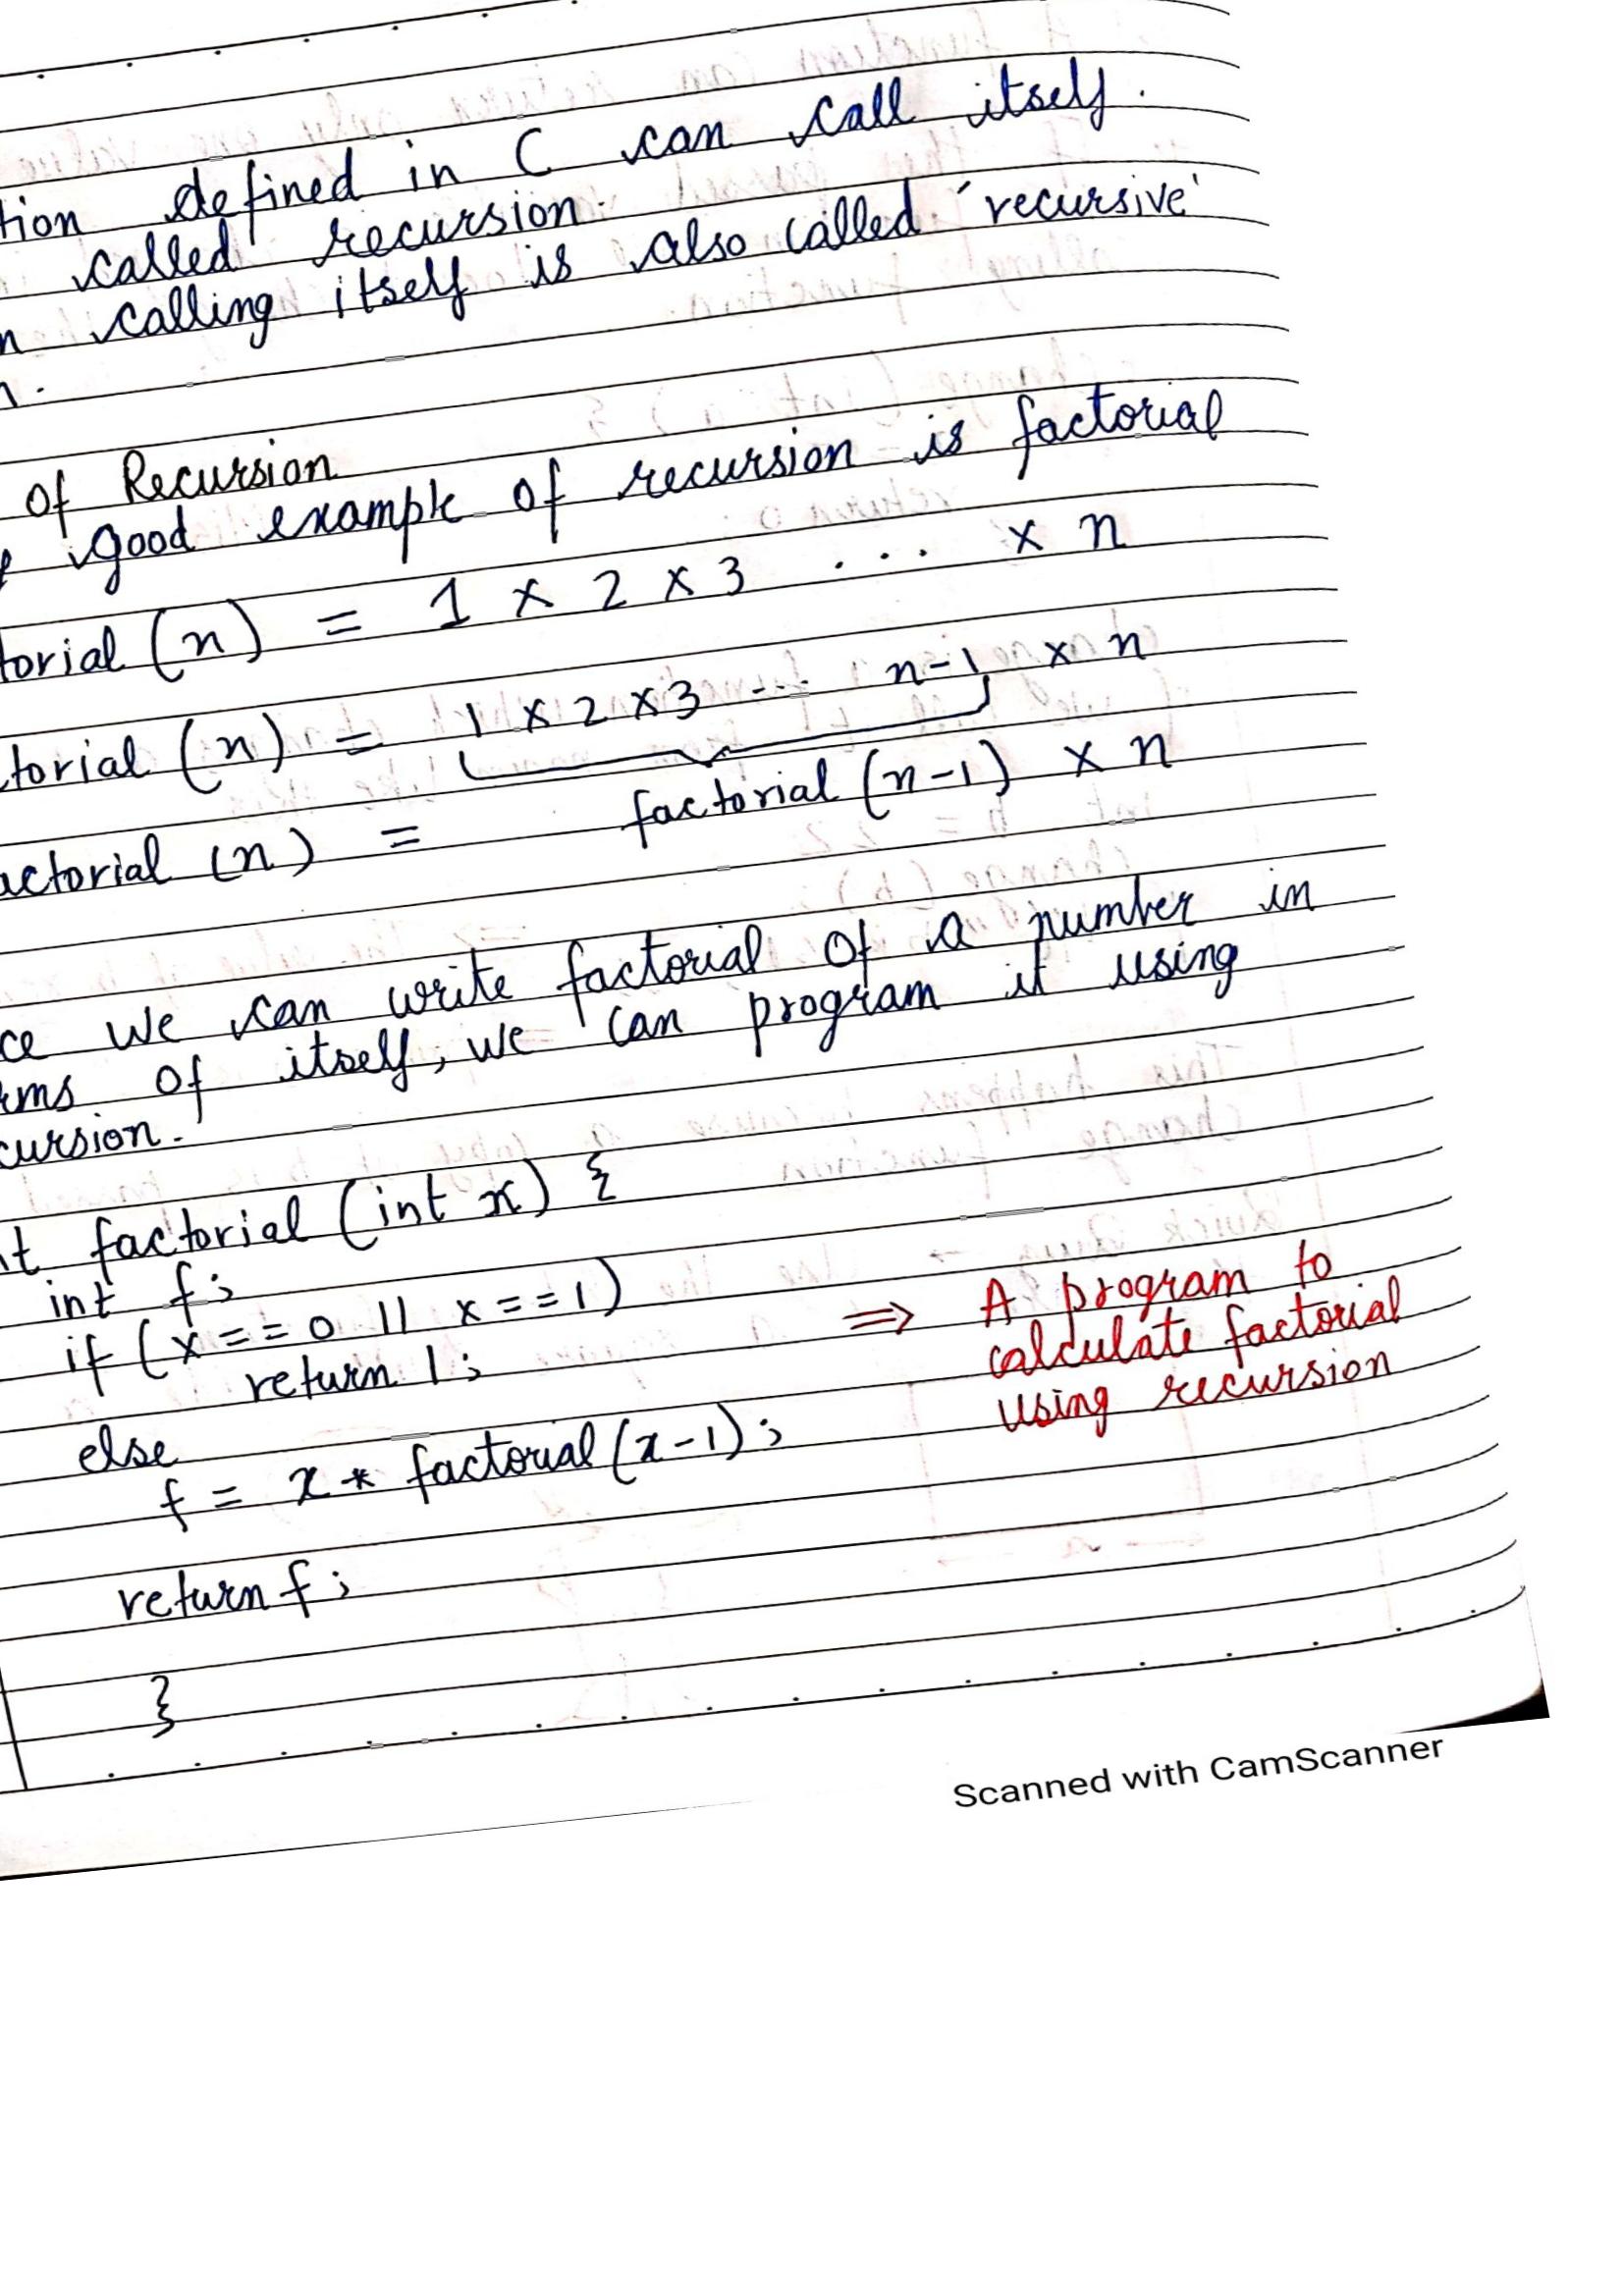 tion defined in C can call itself.
called recursion.
calling itself is also called 'recursive'
of Recursion
good example of recursion is factorial
torial (n) = 1 × 2 × 3 ... × n
torial (n) = 1 × 2 × 3 --- n-1 × n
actorial (n) = factorial (n-1) × n
ce we can write factorial of a number in
rms of itself, we can program it using
cursion.
t factorial (int x) {
int f;
if (x == 0 || x == 1)
return 1;
else
f = x * factorial (x-1);
return f;
}
⇒ A program to
calculate factorial
using recursion
Scanned with CamScanner